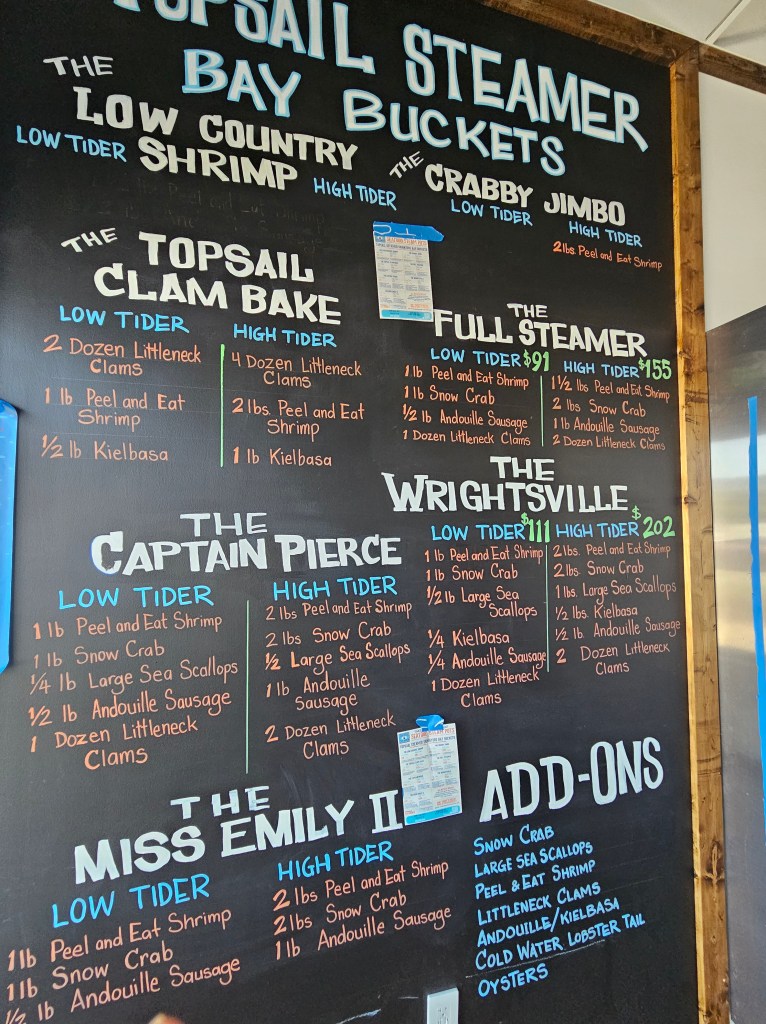 TOPSAIL STEAMER
BAY BUCKETS
THE
LOW COUNTRY
SHRIMP
LOW TIDER
HIGH TIDER
THE
CRABBY JIMBO
LOW TIDER
HIGH TIDER
2 lbs Peel and Eat Shrimp
THE
TOPSAIL
CLAM BAKE
LOW TIDER
2 Dozen Littleneck
Clams
1 lb Peel and Eat
Shrimp
1/2 lb Kielbasa
HIGH TIDER
4 Dozen Littleneck
Clams
2 lbs. Peel and Eat
Shrimp
1 lb Kielbasa
THE
FULL STEAMER
LOW TIDER $91
1 lb Peel and Eat Shrimp
1 lb Snow Crab
1/2 lb Andouille Sausage
1 Dozen Littleneck Clams
HIGH TIDER $155
1 1/2 lbs Peel and Eat Shrimp
2 lbs Snow Crab
1 lb Andouille Sausage
2 Dozen Littleneck Clams
THE
WRIGHTSVILLE
LOW TIDER $111
1 lb Peel and Eat Shrimp
1 lb Snow Crab
1/2 lb Large Sea
Scallops
1/4 Kielbasa
1/4 Andouille Sausage
1 Dozen Littleneck
Clams
HIGH TIDER $202
2 lbs. Peel and Eat Shrimp
2 lbs. Snow Crab
1 lbs. Large Sea Scallops
1/2 lbs. Kielbasa
1/2 lb. Andouille Sausage
2 Dozen Littleneck
Clams
THE
CAPTAIN PIERCE
LOW TIDER
1 lb Peel and Eat Shrimp
1 lb Snow Crab
1/4 lb Large Sea Scallops
1/2 lb Andouille Sausage
1 Dozen Littleneck
Clams
HIGH TIDER
2 lbs Peel and Eat Shrimp
2 lbs Snow Crab
1/2 Large Sea Scallops
1 lb Andouille
Sausage
2 Dozen Littleneck
Clams
THE
MISS EMILY II
LOW TIDER
1 lb Peel and Eat Shrimp
1 lb Snow Crab
1/2 lb Andouille Sausage
HIGH TIDER
2 lbs Peel and Eat Shrimp
2 lbs Snow Crab
1 lb Andouille Sausage
ADD-ONS
SNOW CRAB
LARGE SEA SCALLOPS
PEEL & EAT SHRIMP
LITTLENECK CLAMS
ANDOUILLE/KIELBASA
COLD WATER LOBSTER TAIL
OYSTERS